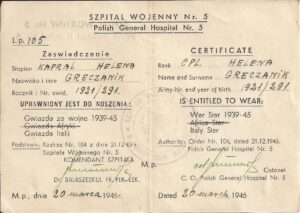 SZPITAL WOJENNY Nr. 5
Polish General Hospital Nr. 5
Lp. 105
Zaświadczenie
Stopień KAPRAL HELENA
Nazwisko i imię GRECZANIK
Rocznik i Nr. ewid. 1931/291.
UPRAWNIONY JEST DO NOSZENIA:
Gwiazda za wojnę 1939-45
Gwiazda Afryki
Gwiazda Italii
Podstawa: Rozkaz Nr. 104 z dnia 21.12.45
Szpitala Wojennego Nr. 5
KOMENDANT SZPITALA
Dr. BAŁASZESKUL FR. PŁK.-LEK.
M. p.
dnia 20 marca 1946 r
CERTIFICATE
Rank CPL. HELENA
Name and Surname GRECZANIK
Army Nr. and year of birth 1931/291.
IS ENTITLED TO WEAR:
War Star 1939-45
Africa Star
Italy Star
Authority: Order Nr. 104, 21.12.1945.
Polish General Hospital Nr. 5
M.p.
Colonel
C. O. Polish General Hospital Nr. 5
Dated 20 march 1946